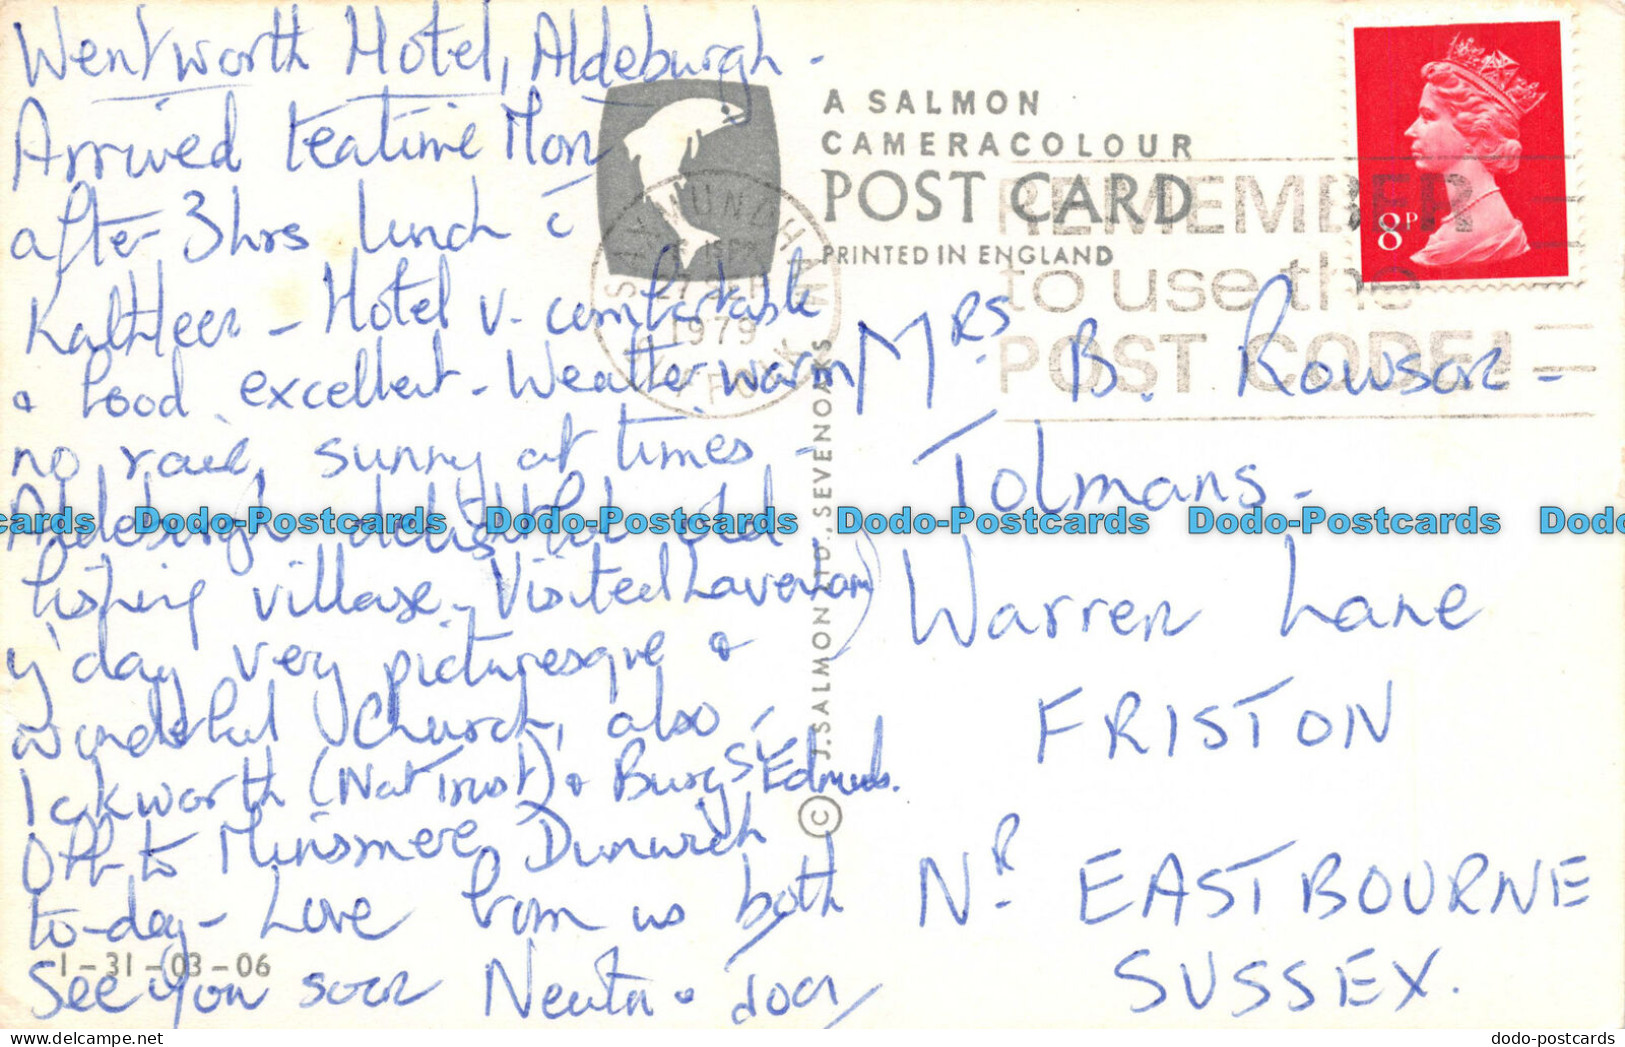 Wentworth Hotel, Aldeburgh -
Arrived teatime Mon
after 3hrs lunch c̄
Kathleen - Hotel v. comfortable
& food excellent - Weather warm
no rain, sunny at times -
Aldeburgh delightful old
fishing village. Visited Lavenham
y'day very picturesque &
wonderful Church, also
Ickworth (Nat Trust) & Bury St Edmunds.
Off to Minsmere, Dunwich
to-day - Love from us both
See you soon
A SALMON
CAMERACOLOUR
POST CARD
PRINTED IN ENGLAND
SAXMUNDHAM
27 SEP
1979
SUFFOLK
REMEMBER
to use the
POST CODE!
8P
Mrs B. Rowson -
Tolmans -
Warren Lane
FRISTON
Nr. EASTBOURNE
SUSSEX.
© J. SALMON LTD., SEVENOAKS
1-31-03-06
cards Dodo-Postcards Dodo-Postcards Dodo-Postcards Dodo-Postcards Dodo
dodo-postcards